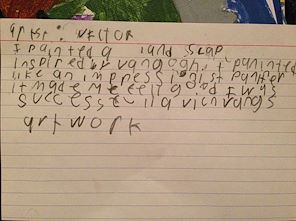 artist: vector
I painted a land scap
Inspired by vangogh. it painted
like an impressionist painter
it made me feel good I was
successful
artwork